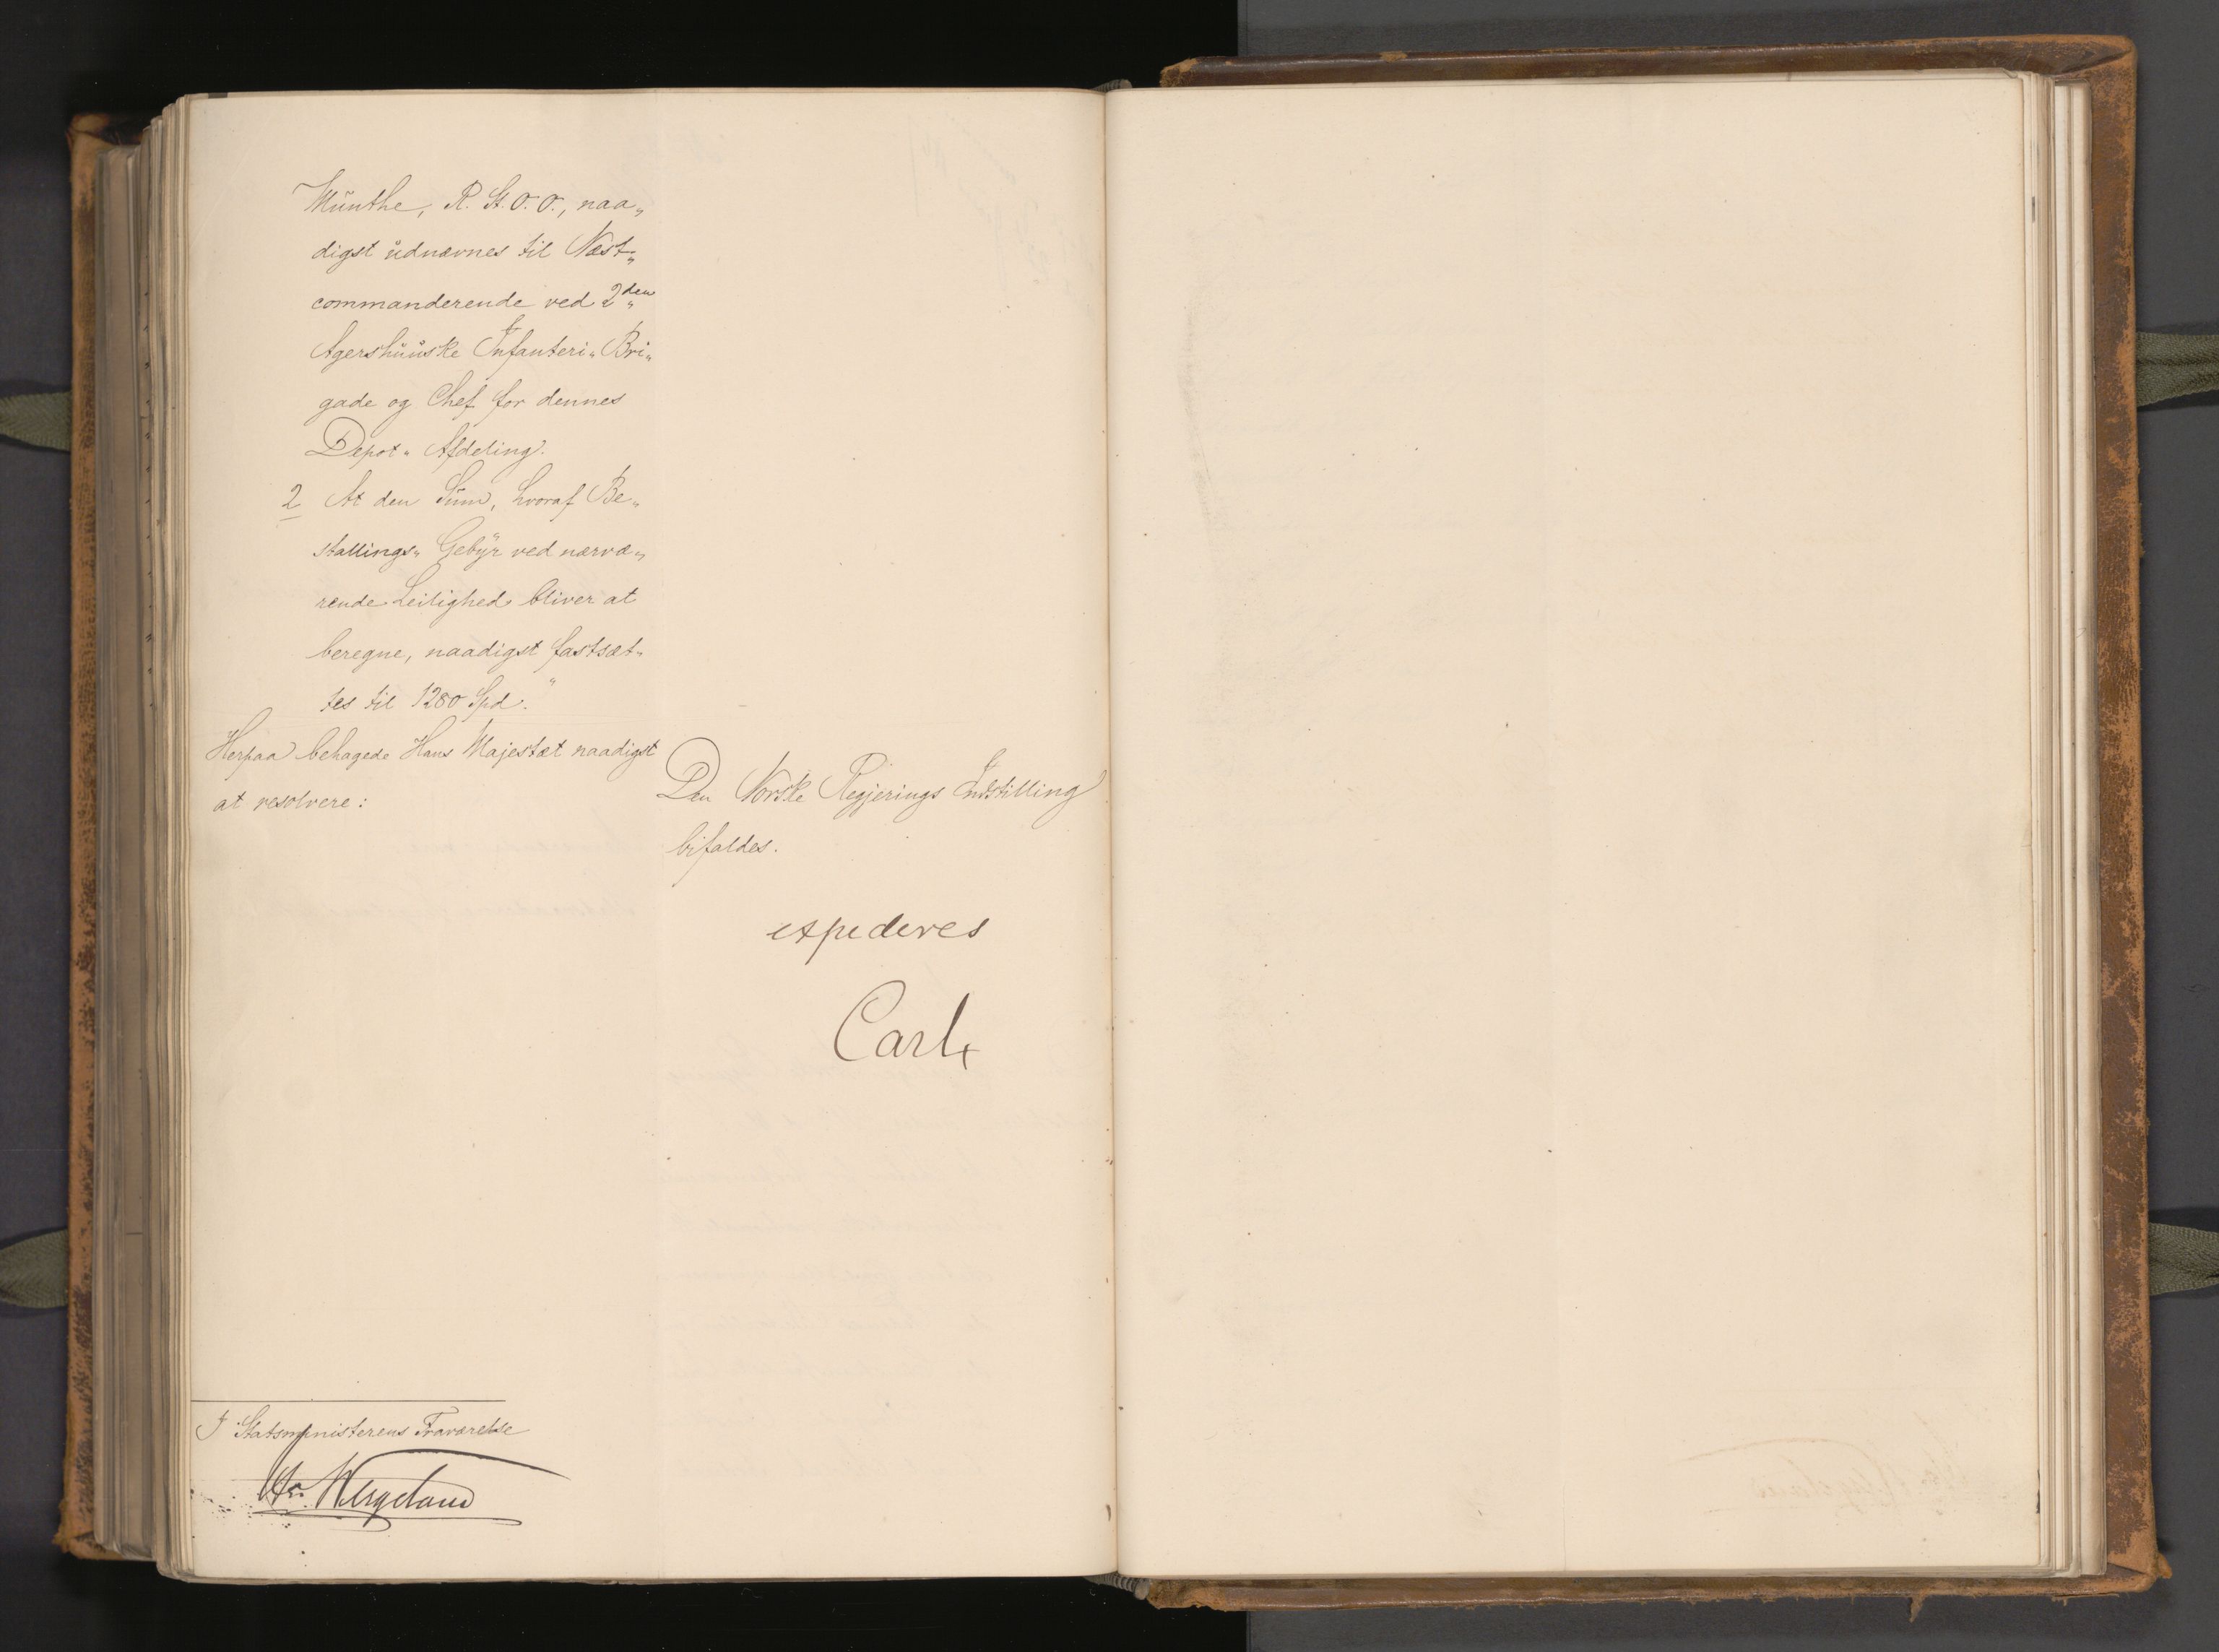 Munthe, R. St. O. O., naa„
digst udnævnes til Næst„
commanderende ved 2den
Agershuuske Infanteri„ Bri„
gade og Chef for dennes
Depot„ Afdeling.
2 At den Sum, hvoraf Be„
stallings„ Gebyr ved nærvæ„
rende Leilighed bliver at
beregne, naadigst fastsæt„
tes til 1280 Spd."
Herpaa behagede Hans Majestæt naadigst
at resolvere:
Den Norske Regjerings Indstilling
bifaldes.
expederes
Carl
I Statsministerens Fraværelse
Wergeland